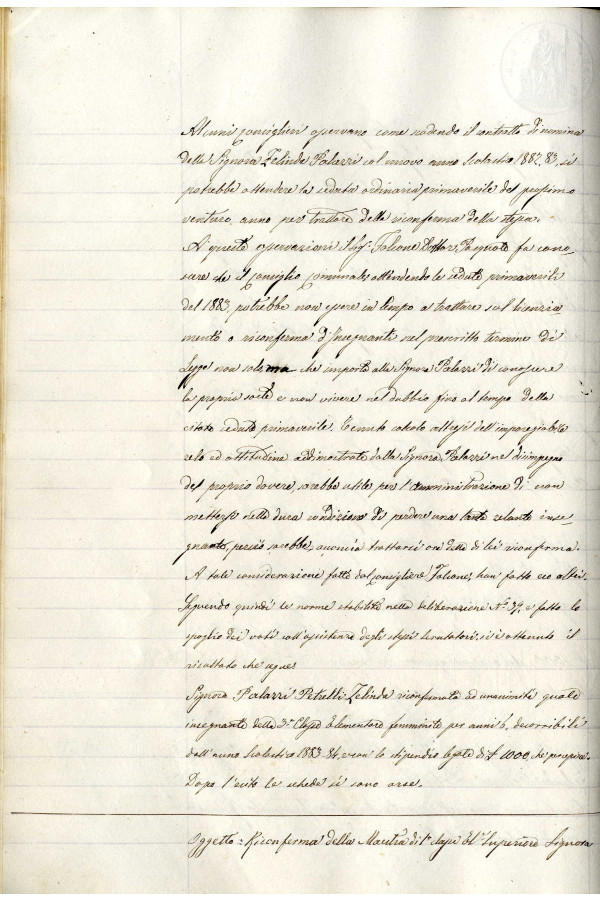 Alcuni consiglieri osservano come scadendo il contratto di nomina
della Signora Zelinda Palazzi col nuovo anno scolastico 1882.83, si
potrebbe attendere la seduta ordinaria primaverile del prossimo
venturo anno per trattare della riconferma della stessa.
A queste osservazioni il Sig. Falcone Dottor Pasquale fa cono-
scere che il Consiglio Comunale attendendo le sedute primaverili
del 1883, potrebbe non essere in tempo a trattare sul licenzia-
mento o riconferma d'Insegnanti nel prescritto termine di
Legge non solo ma che importa alla Signora Palazzi di conoscere
la propria sorte e non vivere nel dubbio fino al tempo della
citata seduta primaverile. Tenuto calcolo altresì dell'impareggiabile
zelo ed attitudine addimostrata dalla Signora Palazzi nel disimpegno
del proprio dovere, sarebbe utile per l'amministrazione di non
mettersi nella dura condizione di perdere una tanto zelante inse-
gnante, perciò sarebbe trattarsi ora della di lei riconferma.
A tale considerazione fatta dal Consigliere Falcone, han fatto eco altri.
Seguendo quindi le norme stabilite nella deliberazione N.° 39, e fatto lo
spoglio dei voti coll'assistenza degli stessi scrutatori, si è ottenuto il
risultato che segue:
Signora Palazzi Petrelli Zelinda riconfermata ad unanimità quale
insegnante della 3.ª Classe Elementare femminile per anni 6, decorribili
dall'anno scolastico 1883-84, e con lo stipendio legale di £ 1000, che percepisce.
Dopo l'esito le schede si sono arse.
Oggetto: Riconferma della Maestra di 1ª classe El.e Superiore Signora